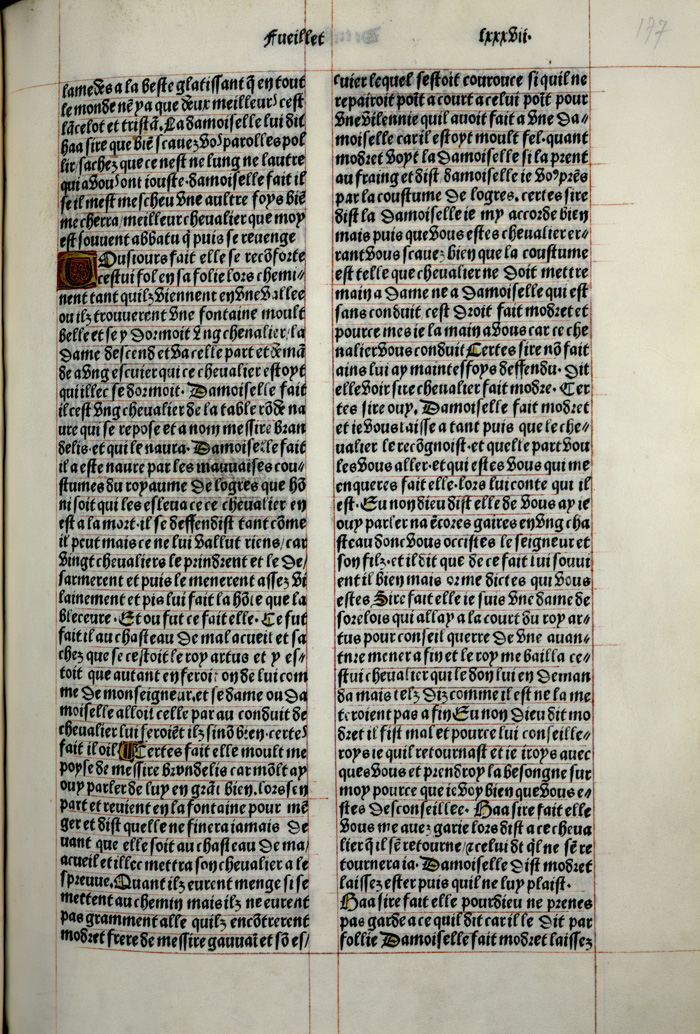 Fueillet
lxxxvii.
177
lamedes a la beste glatissant q̃ en tout
le monde nẽ ya que deux meilleurs cest
lãcelot et tristã. La damoiselle lui dit
haa sire que biẽ scauez vos parolles pol
lir, sachez que ce nest ne lung ne lautre
qui a vous ont iouste. damoiselle fait il
se il mest mescheu vne aultre foys biẽ
me cherra/ meilleur cheualier que moy
est souuent abbatu q̃ puis se reuenge
Tousiours fait elle se recõforte
cestui fol en sa folie lors chemi-
nent tant quilz viennent en vne vallee
ou ilz trouuerent vne fontaine moult
belle et se y dormoit vng cheualier/ la
dame descend et va celle part et demã
de a vng escuier qui ce cheualier estoyt
qui illec se dormoit. Damoiselle fait
il cest vng cheualier de la table rõde na
ure qui se repose et a nom messire bran
delis. et qui le naura. Damoiselle fait
il a este naure par les mauuaises cou-
stumes du royaume de logres que hõ
ni soit qui les esleua ce ce cheualier en
est a la mort. il se deffendist tant cõme
il peut mais ce ne lui vallut riens/ car
vingt cheualiers le prindrent et le de/
sarmerent et puis le menerent assez vi
lainement et pis lui fait la hõte que la
bleceure. Et ou fut ce fait elle. Ce fut
fait il au chasteau de mal acueil et sa
chez que se cestoit le roy artus et y es-
toit que autant en feroit on de lui com
me de monseigneur. et se dame ou da
moiselle alloit celle par au conduit de
cheualier lui feroiẽt ilz sinõ bien. certes
fait il oil. Certes fait elle moult me
poyse de messire brandelis car mõlt ay
ouy parler de luy en grãt bien. lors sen
part et reuient en la fontaine pour mẽ
ger et dist quelle ne finera iamais de
uant que elle soit au chasteau de ma/
acueil et illec mettra son cheualier a le
spreuue. Quant ilz eurent menge si se
mettent au chemin mais ilz ne eurent
pas gramment alle quilz encõtrerent
modret frere de messire gauuaĩ et sõ es/
cuier lequel sestoit courouce si quil ne
repairoit poĩt a court a celui poĩt pour
vne vilennie quil auoit fait a vne da-
moiselle car il estoyt moult fel. quant
modret voyt la damoiselle si la prent
au fraing et dist damoiselle ie vous prẽs
par la coustume de logres. certes sire
dist la damoiselle ie my accorde bien
mais puis que vous estes cheualier er-
rant vous scauez bien que la coustume
est telle que cheualier ne doit mettre
main a dame ne a damoiselle qui est
sans conduit. cest droit fait modret et
pource mes ie la main a vous car ce che
nalier vous conduit Certes sire nõ fait
ains lui ay maintesfoys deffendu. Dit
elle voir sire cheualier fait modre. Cer
tes sire ouy. Damoiselle fait modret
et ie vous laisse a tant puis que le che-
ualier le recõgnoist. et quelle part vou
les vous aller. et qui estes vous qui me
enqueres fait elle. lors lui conte qui il
est. En non dieu dist elle de vous ay ie
ouy parler na ẽcores gaires en vng cha
steau donc vous occistes le seigneur et
son filz. et il dit que de ce fait lui souui
ent il bien mais or me dictes qui vous
estes Sire fait elle ie suis vne dame de
sorelois qui allay a la court du roy ar-
tus pour conseil querre de vne auan-
tnre mener a fin et le roy me bailla ce-
stui cheualier qui le don lui en deman
da mais telz diz comme il est ne la me
teroient pas a fin En non dieu dit mo
dret il fist mal et pource lui conseille-
roys ie quil retournast et ie iroys auec
ques vous et prendroy la besongne sur
moy pource que ie voy bien que vous e-
stes desconseillee. Haa sire fait elle
vous me auez garie lors dist a ce cheua
lier q̃ il sẽ retourne/ celui dt q̃l ne sẽ re
tournera ia. Damoiselle dist modret
laissez ester puis quil ne luy plaist.
Haa sire fait elle pour dieu ne prenes
pas garde a ce quil dit car il le dit par
follie Damoiselle fait modret laissez